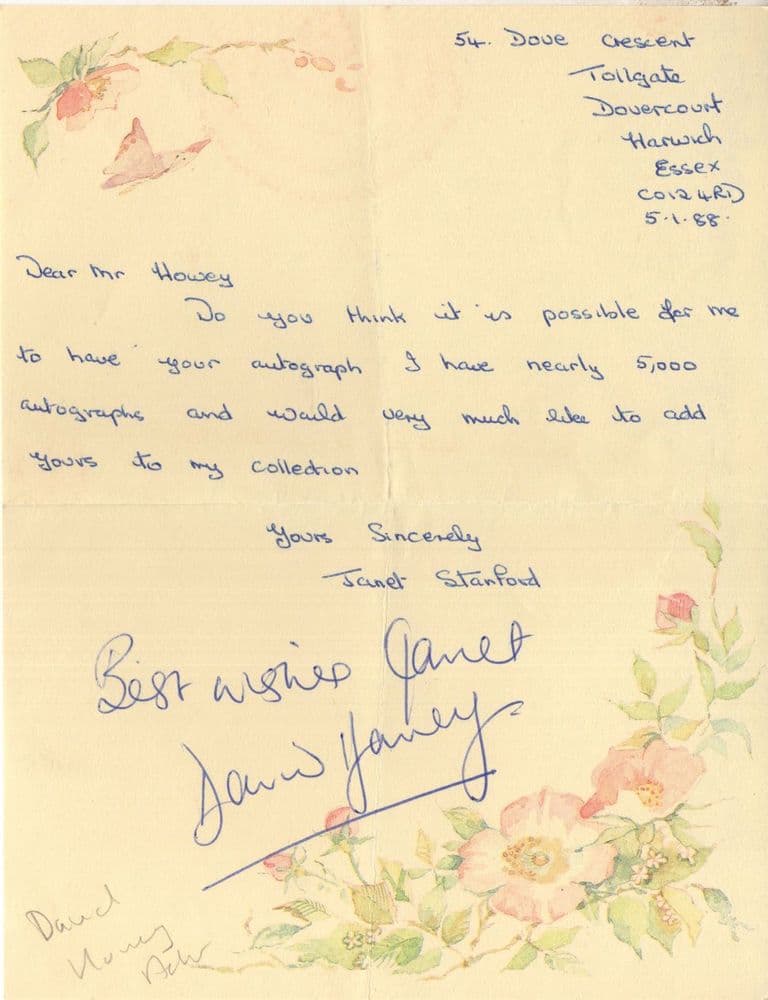 54. Dove Crescent
Tollgate
Dovercourt
Harwich
Essex
CO12 4RD
5.1.88.
Dear Mr Howey
Do you think it is possible for me
to have your autograph I have nearly 5,000
autographs and would very much like to add
yours to my collection
Yours Sincerely
Janet Stanford
Best wishes Janet
David Howey
David
Howey